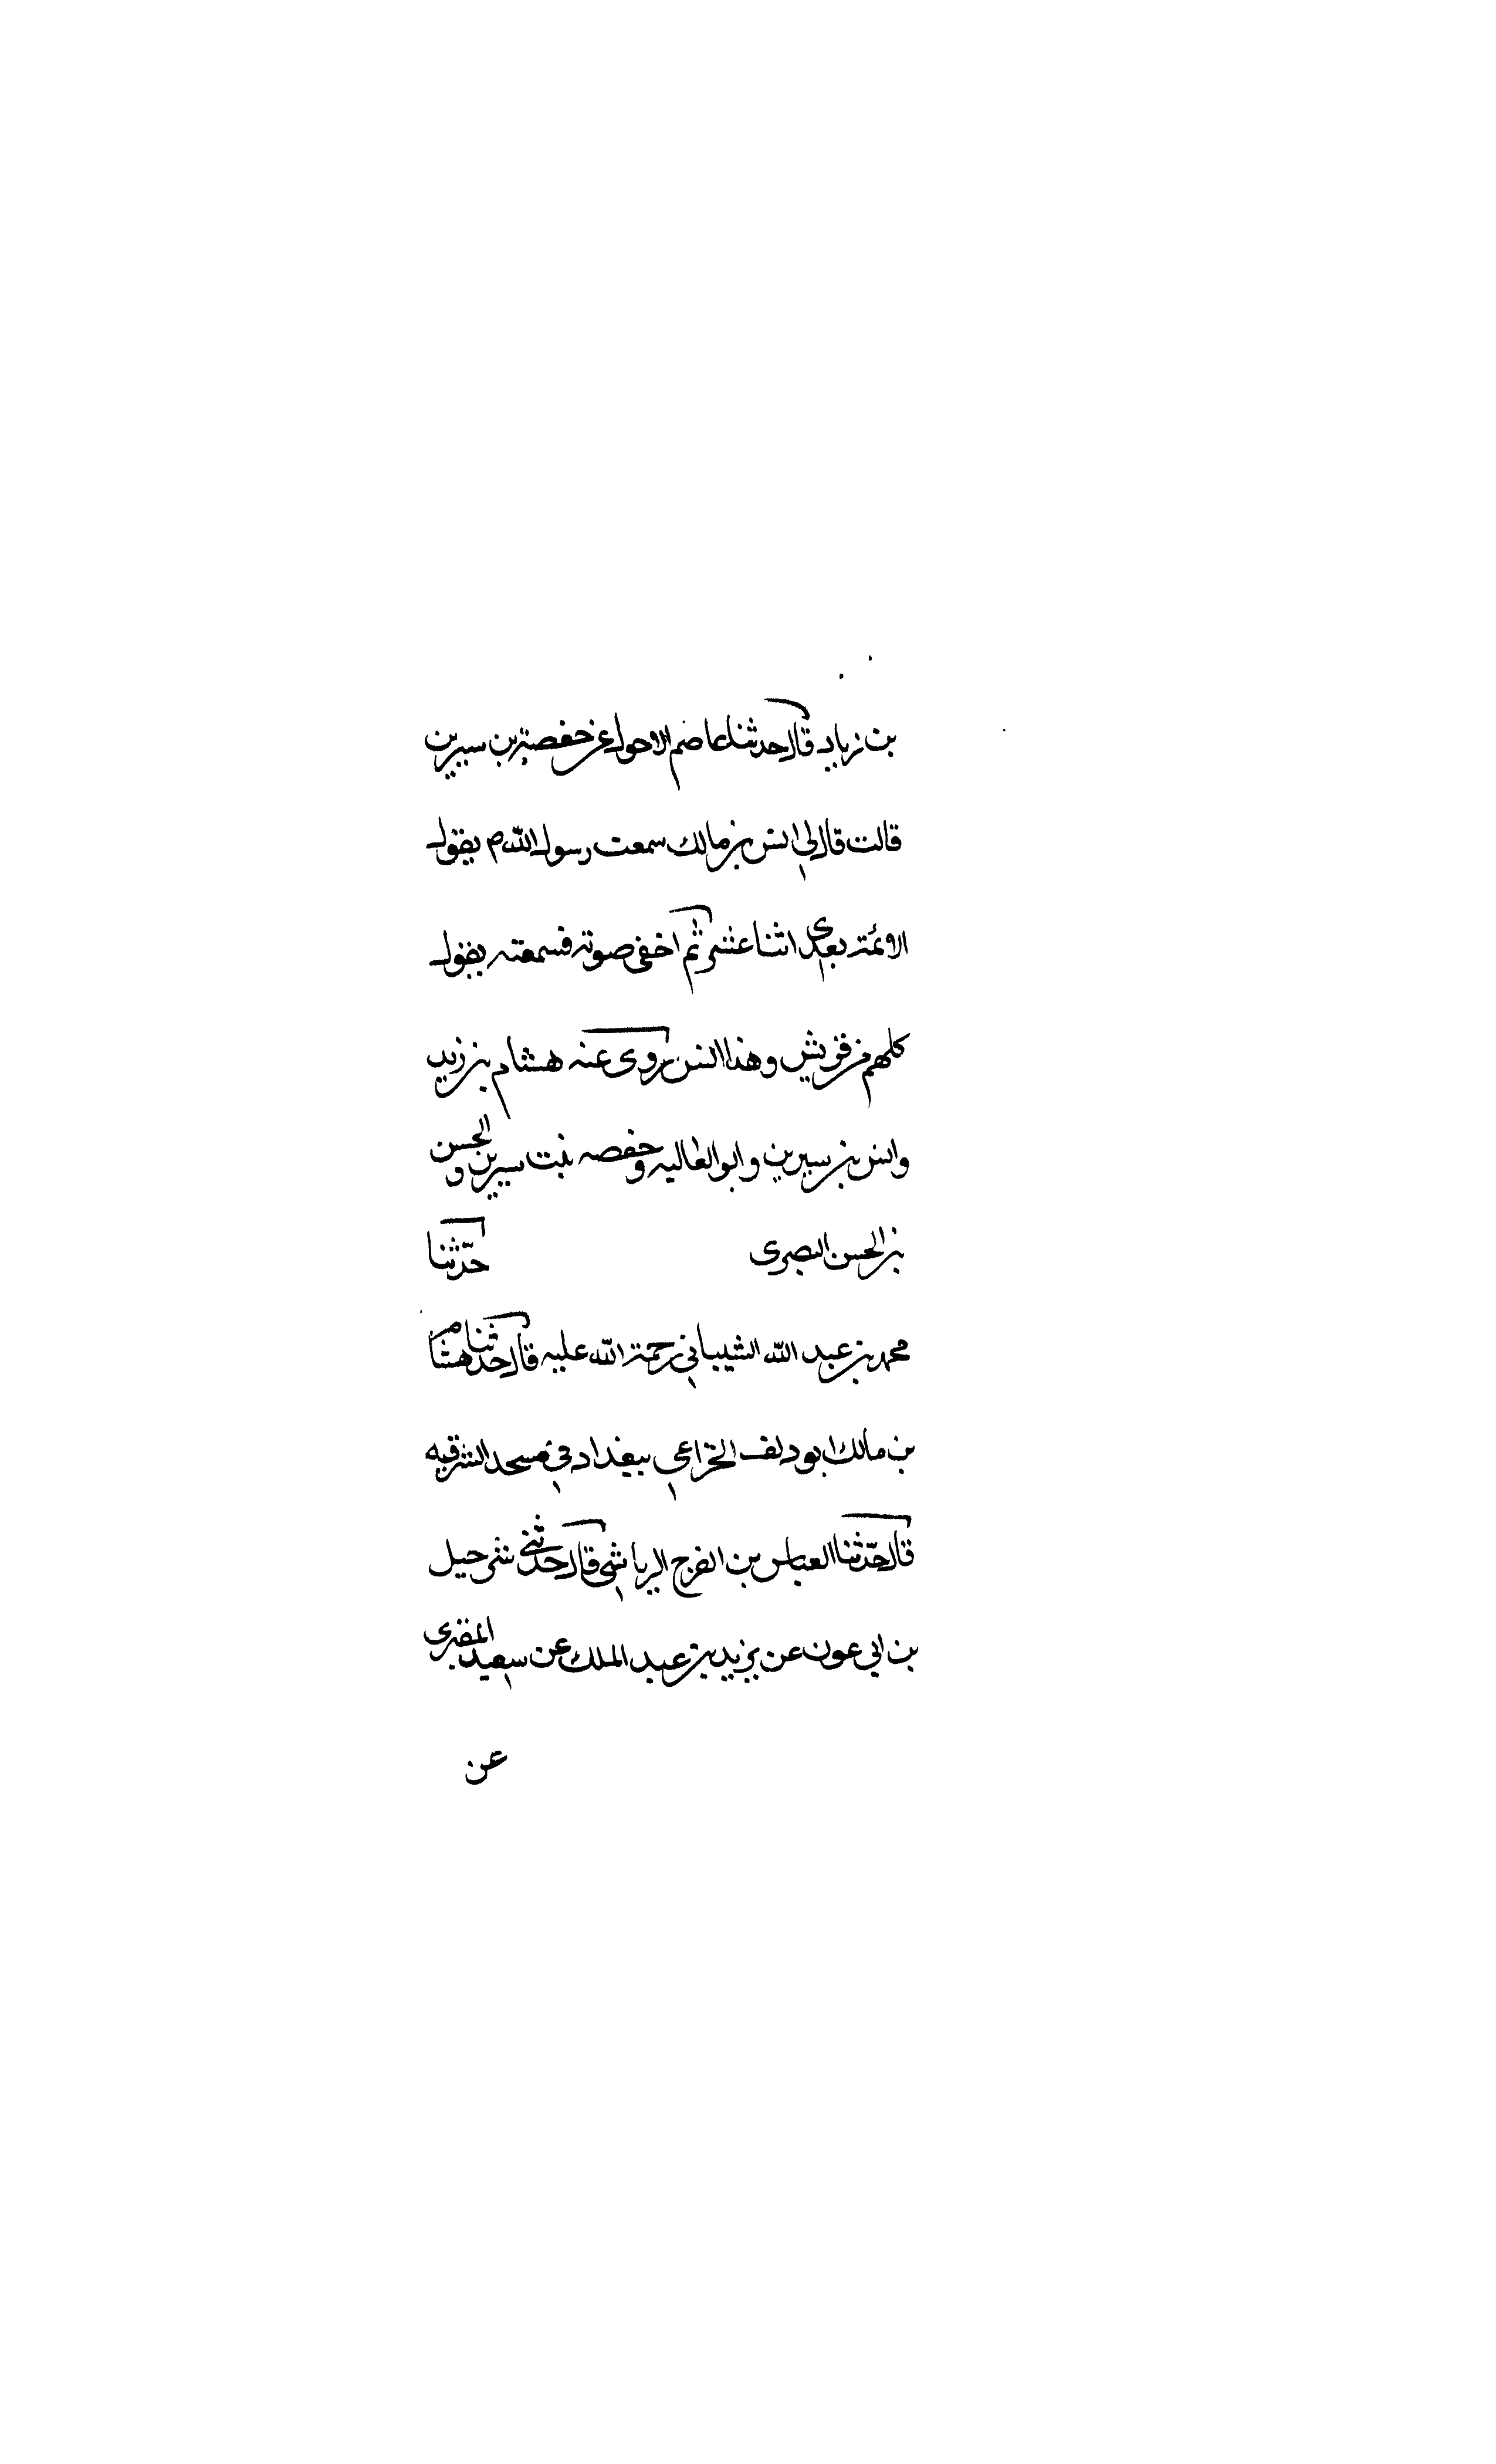 بن زياد قال حدثنا عاصم الاحول عن حفصة بن سيرين
قالت قال لي انس بن مالك سمعت رسول الله م يقول
الائمة بعدي اثنا عشر ثم اخفى صوته فسمعته يقول
كلهم من قريش وهذا انس روى عنه هشام بن زيد
وانس بن سيرين وابو العاليه وحفصه بنت سيرين والحسن
بن الحسن البصرى حدّثنا
محمد بن عبد الله الشيباني رحمة الله عليه قال حدثنا هشام
بن مالك ابو دلف الخزاعي ببغداد في مسجد الشرقيه
قال حدّثنا العباس بن الفرج الرياشي قال حدثني شرحيل
بن ابي عون عن يزيد بن عبد الملك عن سعيد المقبرى
عن